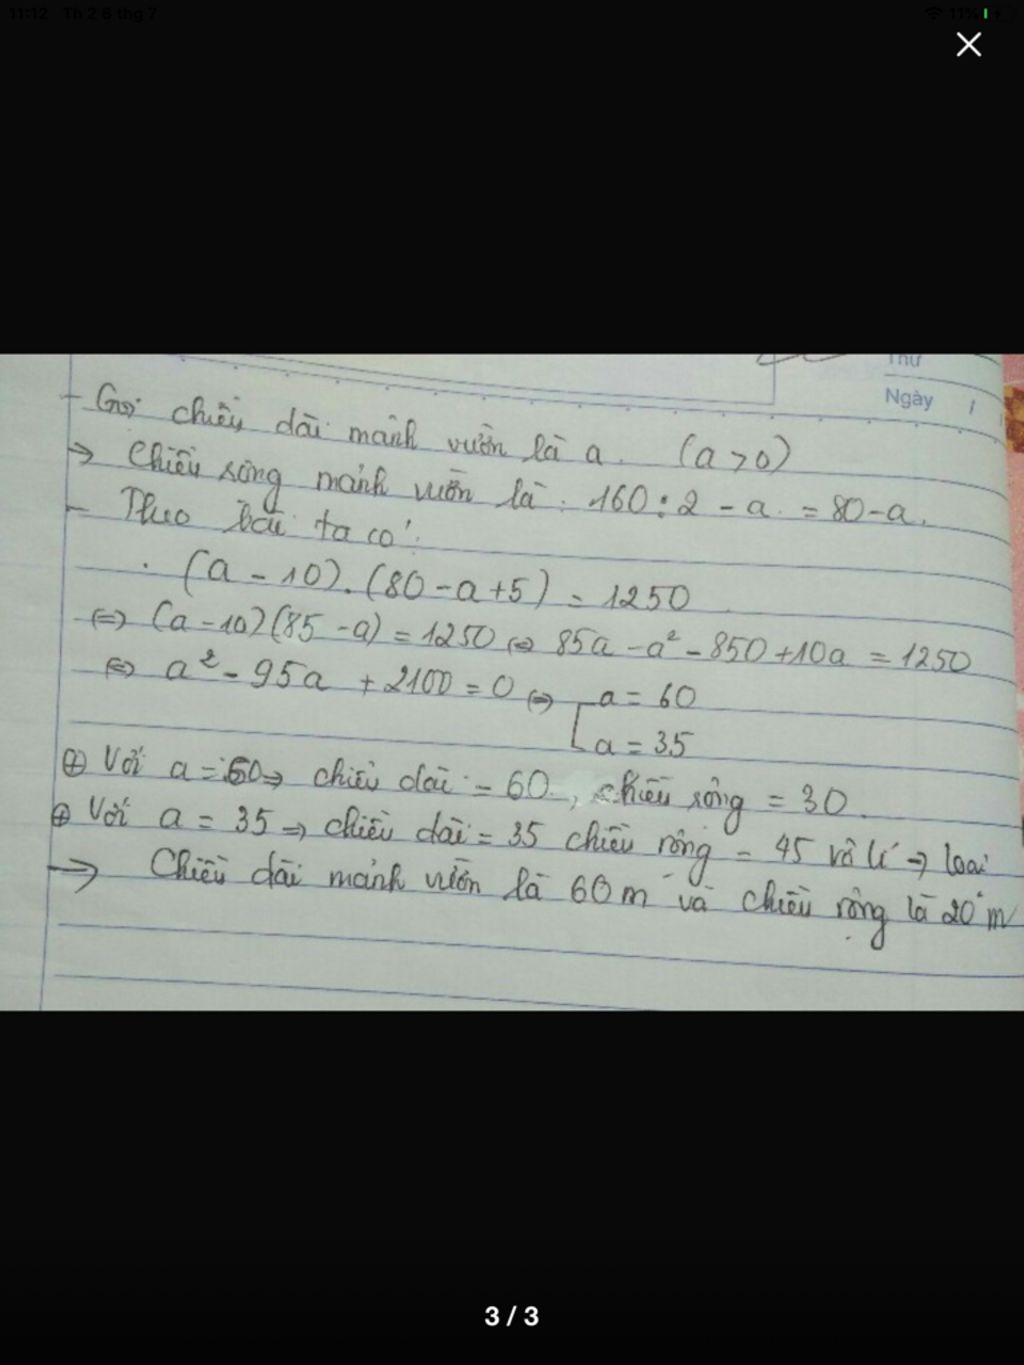 11:12 Th 2 6 thg 7
11%
Thứ
Ngày /
- Gọi chiều dài mảnh vườn là a. (a > 0)
→ Chiều rộng mảnh vườn là : 160 : 2 - a. = 80 - a.
- Theo bài ta có:
. (a - 10). (80 - a + 5) = 1250
⇔ (a - 10)(85 - a) = 1250 ⇔ 85a - a² - 850 + 10a = 1250
⇔ a² - 95a + 2100 = 0 ⇔ [ a = 60
a = 35
⊕ Với a = 60 ⇒ chiều dài = 60 , chiều rộng = 30.
⊕ Với a = 35 ⇒ chiều dài = 35 chiều rộng = 45 vô lí ⇒ loại
→ Chiều dài mảnh vườn là 60 m và chiều rộng là 20 m
3 / 3